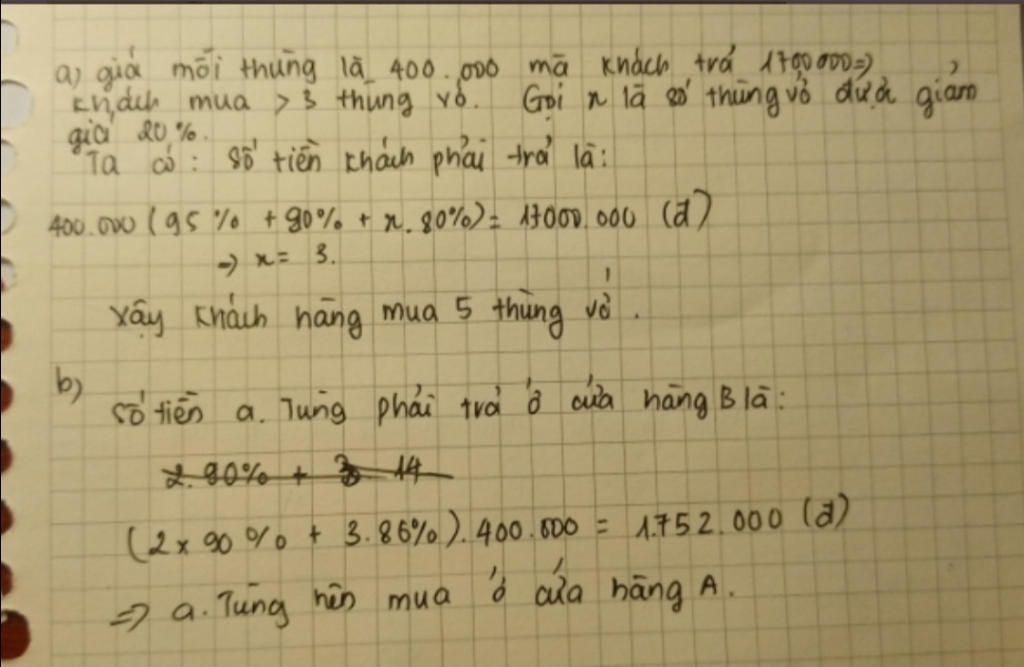 a) giá mỗi thùng là 400.000 mà khách trả 1700000 =>
khách mua > 3 thùng vở. Gọi x là số thùng vở được giảm
giá 20%.
Ta có: số tiền khách phải trả là:
400.000 (95% + 90% + x. 80%) = 17000.000 (đ)
-> x = 3.
Vậy khách hàng mua 5 thùng vở.
b)
số tiền a. Tùng phải trả ở cửa hàng B là:
2. 90% + 3 14
(2 x 90% + 3.86%).400.000 = 1.752.000 (đ)
=> a. Tùng nên mua ở cửa hàng A.